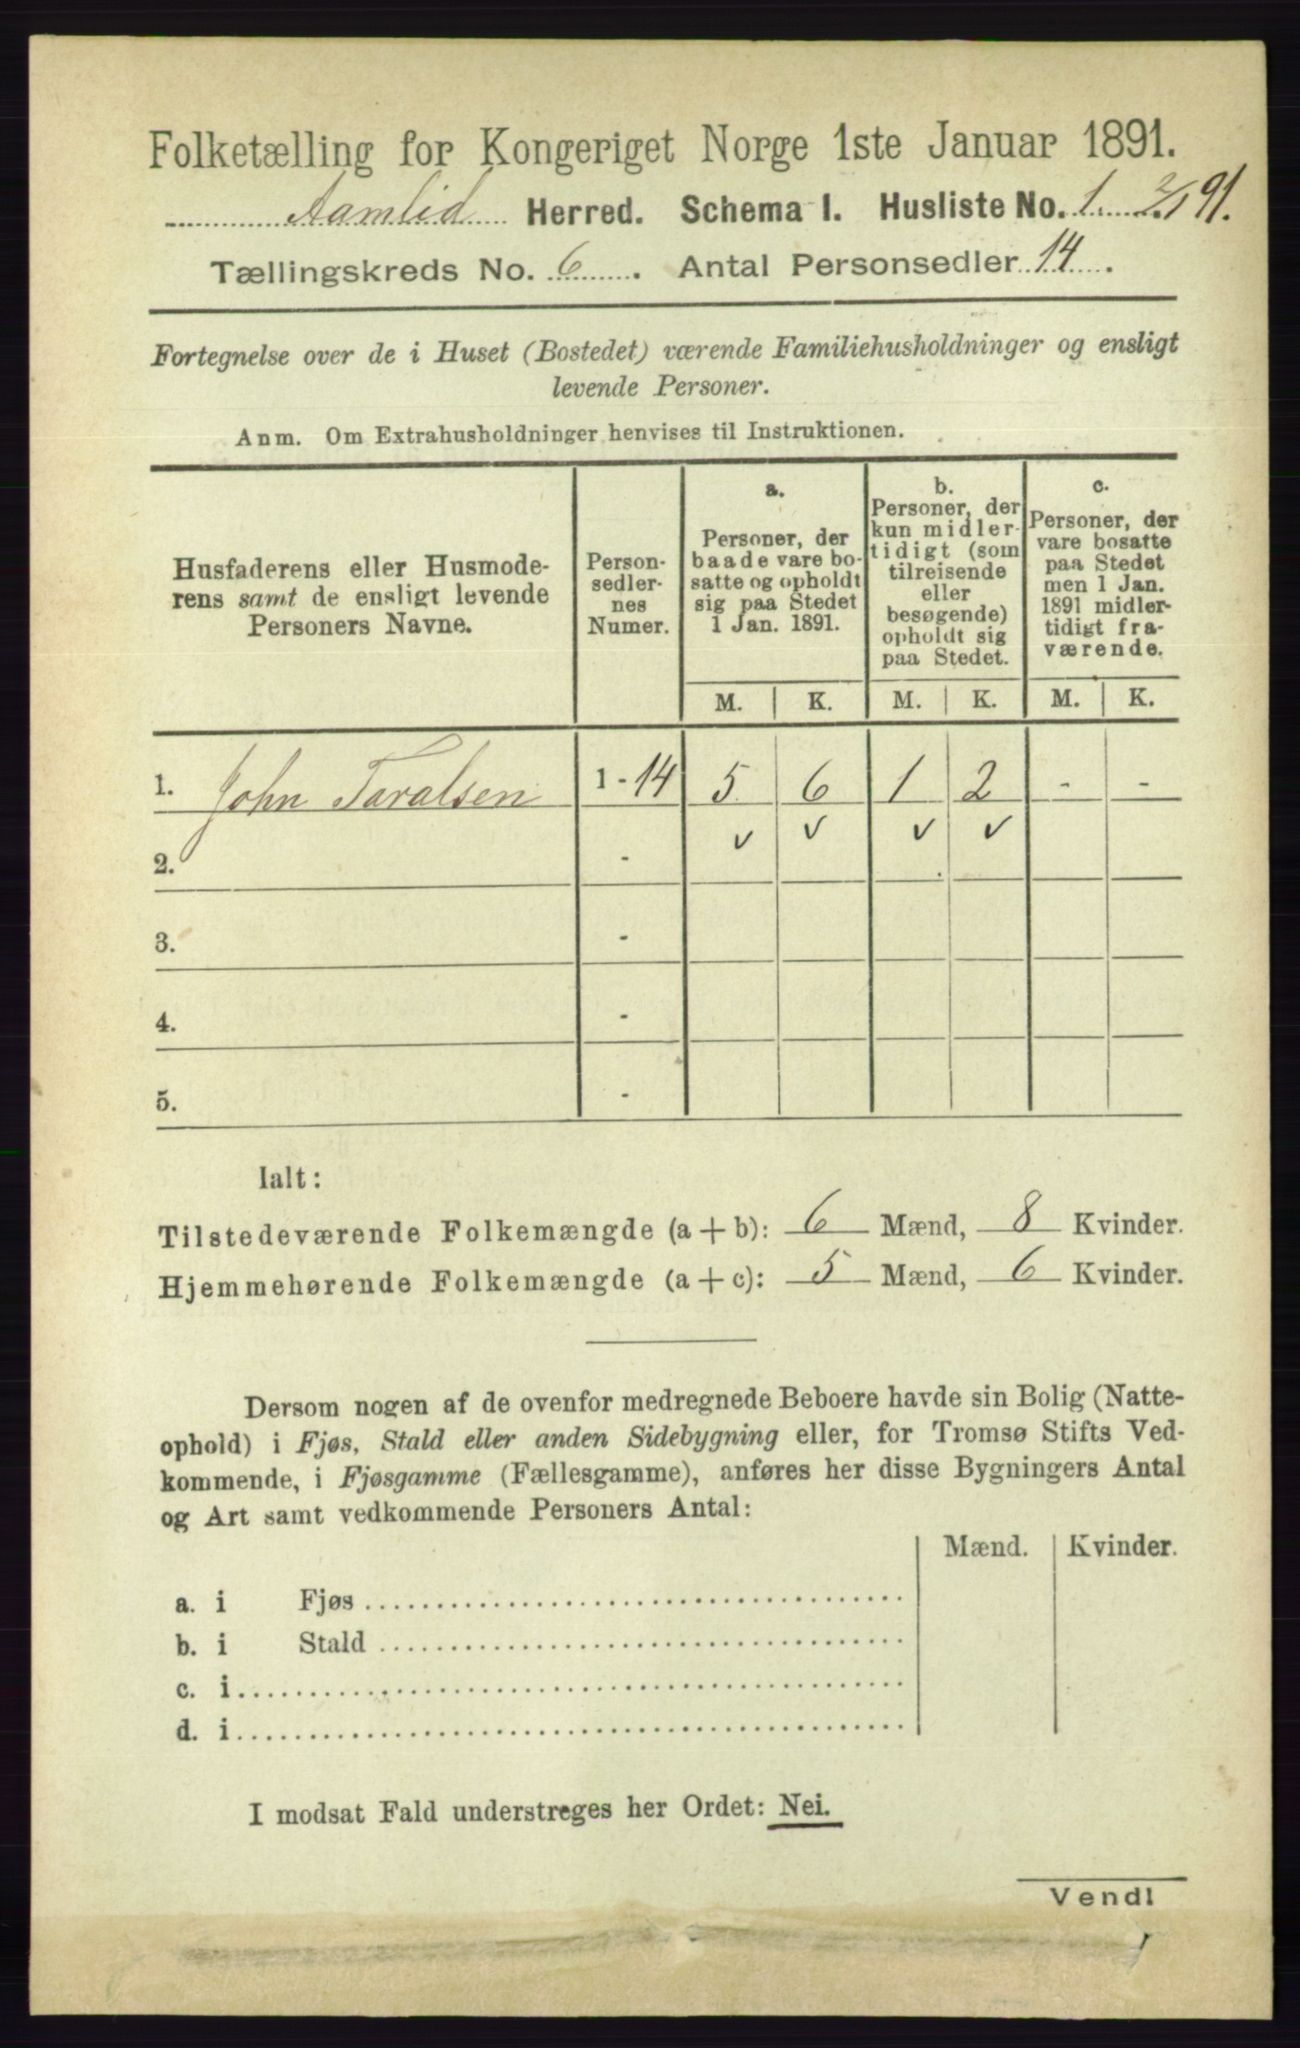 Folketælling for Kongeriget Norge 1ste Januar 1891.
Aamlid Herred. Schema I. Husliste No. 1. 2/1 91.
Tællingskreds No. 6. Antal Personsedler 14.
Fortegnelse over de i Huset (Bostedet) værende Familiehusholdninger og ensligt
levende Personer.
Anm. Om Extrahusholdninger henvises til Instruktionen.
Husfaderens eller Husmode-
rens samt de ensligt levende
Personers Navne.
Person-
sedler-
nes
Numer.
a.
Personer, der
baade vare bo-
satte og opholdt
sig paa Stedet
1 Jan. 1891.
b.
Personer, der
kun midler-
tidigt (som
tilreisende
eller
besøgende)
opholdt sig
paa Stedet.
c.
Personer, der
vare bosatte
paa Stedet
men 1 Jan.
1891 midler-
tidigt fra-
værende.
M. K. M. K. M. K.
1. John Taralsen 1 - 14 5 6 1 2 - -
v v v v
2. -
3. -
4. -
5. -
Ialt:
Tilstedeværende Folkemængde (a + b): 6 Mænd, 8 Kvinder.
Hjemmehørende Folkemængde (a + c): 5 Mænd, 6 Kvinder.
Dersom nogen af de ovenfor medregnede Beboere havde sin Bolig (Natte-
ophold) i Fjøs, Stald eller anden Sidebygning eller, for Tromsø Stifts Ved-
kommende, i Fjøsgamme (Fællesgamme), anføres her disse Bygningers Antal
og Art samt vedkommende Personers Antal:
Mænd. Kvinder.
a. i Fjøs
b. i Stald
c. i
d. i
I modsat Fald understreges her Ordet: Nei.
Vend!